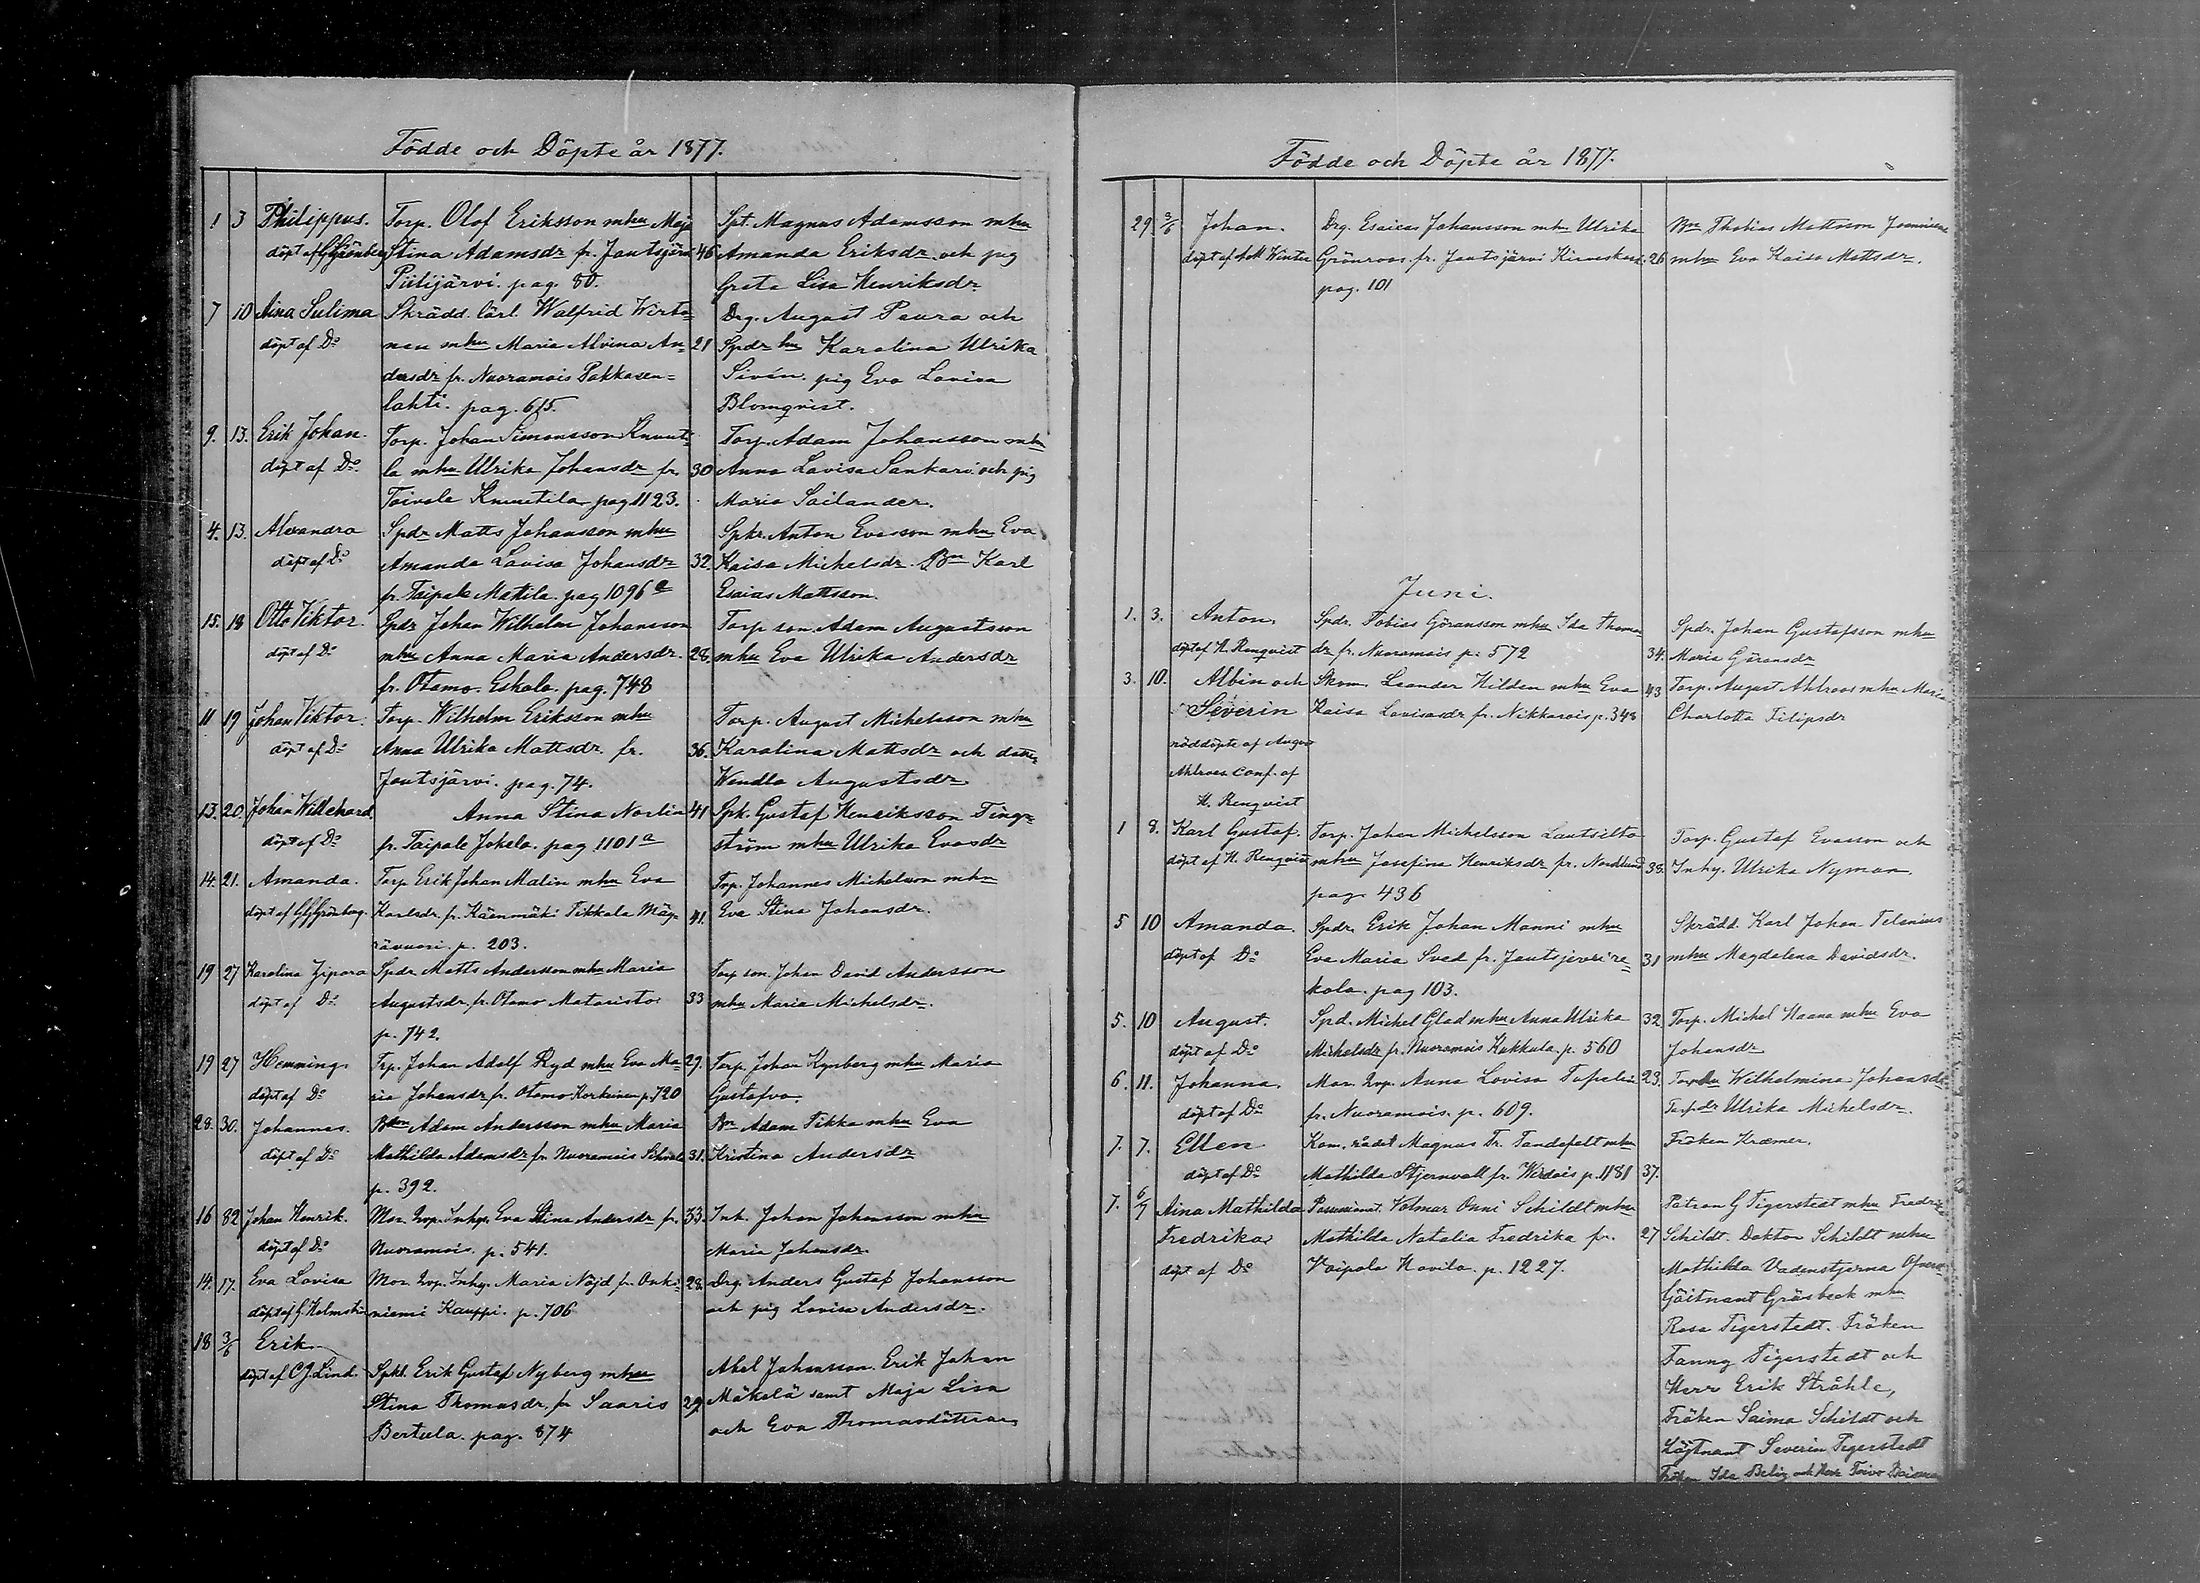 Födde och Döpte år 1877.
1 3 Philippus. Torp. Olof Eriksson mhu Maja Spt. Magnus Adamsson mhu
döpt af G Grönberg Stina Adamsdr fr. Jautsjärvi 46 Amanda Eriksdr och pig
Piilijärvi. pag. 80. Greta Lisa Henriksdr
7 10 Aina Sulima Skrädd. lärl. Walfrid Wirta- Drg. August Paura och
döpt af Do nen mhu Maria Alvina An- 21 Spdr hu Karolina Ulrika
dersdr fr. Nuoramois Pakkasen= Sivén. pig Eva Lovisa
lahti. pag. 615. Blomqvist.
9. 13. Erik Johan. Torp. Johan Simonsson Knuut- Torp. Adam Johansson mhu
döpt af Do. la mhu Ulrika Johansdr fr. 30 Anna Lovisa Sankari och pig
Toivola Knuutila pag 1123. Maria Sailander.
4. 13. Alexandra Spdr Matts Johansson mhu Spkr. Anton Evasson mhu Eva
döpt af Do Amanda Lovisa Johansdr 32. Kaisa Michelsdr. Bn Karl
fr. Taipale Mattila. pag 1096 a Esaias Mattsson.
15. 18 Otto Viktor. Spdr Johan Wilhelm Johansson Torp son. Adam Augustsson
döpt af Do mhu Anna Maria Andersdr. 28. mhu Eva Ulrika Andersdr
fr. Otamo. Eskola. pag. 748
11 19 Johan Viktor. Torp. Wilhelm Eriksson mhu Torp. August Michelsson mhu
döpt af Do Anna Ulrika Mattsdr. fr. 36. Karolina Mattsdr och dottr.
Jautsjärvi. pag. 74. Wendla Augustsdr
13. 20. Johan Willehard Anna Stina Norlin 41 Spk. Gustaf Henriksson Ting-
döpt af Do fr. Taipale Jokela. pag 1101 a ström mhu Ulrika Evasdr
14. 21. Amanda. Torp Erik Johan Malin mhu Eva Trp. Johannes Michelsson mhu
döpt af G Grönberg. Karlsdr. fr. Käenmäki Tikkala Mäg- 41. Eva Stina Johansdr.
rävuori. p. 203.
19 27 Karolina Zipora Spdr Matts Andersson mhu Maria Torp son. Johan David Andersson
döpt af Do. Augustsdr. fr. Otamo Mataristo 33 mhu Maria Michelsdr.
p. 742.
19 27 Hemming. Trp. Johan Adolf Ryd mhu Eva Ma- 29. Torp. Johan Kynberg mhu Maria
döpt af Do ria Johansdr fr. Otamo Korkeinen p. 720 Gustafva.
28. 30. Johannes. Bdn Adam Andersson mhu Maria Bn Adam Tikka mhu Eva
döpt af Do Mathilda Adamsdr fr Nuoramois 31. Kristina Andersdr
p. 392.
16 Johan Henrik. Mor. Inp. Inhys. Eva Stina Andersdr fr. 33. Inh. Johan Johansson mhu
döpt af Do Nuoramois. p. 541. Maria Johansdr.
14. 17. Eva Lovisa Mor. Inp. Inhy. Maria Nöjd fr. Onki- 28. Drg. Anders Gustaf Johansson
döpt af G Holmström niemi Kauppi. p. 706 och pig Lovisa Andersdr.
18 3/6 Erik
döpt af C J. Lind. Spkl. Erik Gustaf Nyberg mhu Abel Johansson. Erik Johan
Stina Thomasdr. fr Saaris 29. Mäkelä samt Maja Lisa
Bertula. pag. 874 och Eva Thomasdöttrar
Födde och Döpte år 1877.
29. 3/6 Johan. Drg. Esaias Johansson mhu Ulrika Bn Thobias Mattsson
döpt af A M Winter Grönroos. fr. Jautsjärvi 26 mhu Eva Kaisa Mattsdr.
pag. 101
Juni.
1. 3. Anton. Spdr. Tobias Göransson mhu Ida Thomas Spdr. Johan Gustafsson mhu
döpt af H. Renqvist dr fr. Nuoramois p. 572 34. Maria Göransdr
3. 10. Albin och Skom. Leander Hilden mhu Eva 43 Torp. August Ahlroos mhu Maria
Severin Kaisa Lovisasdr fr. Nikkarois p. 348 Charlotta Filipsdr
nöddöpte af August
Ahlroos. conf. af
H. Renqvist
1 8. Karl Gustaf. Torp. Johan Michelsson Lautsilta Torp. Gustaf Evasson och
döpt af H. Renqvist mhu Josefina Henriksdr fr. Nordlund 38. Inhy. Ulrika Nyman.
pag. 436
5 10 Amanda. Spdr. Erik Johan Manni mhu Skrädd. Karl Johan Telenius
döpt af Do Eva Maria Sved fr. 31 mhu Magdalena Davidsdr.
kola. pag 103.
5. 10 August. Spd. Michel Glad mhu Anna Ulrika 32 Torp. Michel Haana mhu Eva
döpt af Do Michelsdr fr. Nuoramois Kukkula p. 560 Johansdr
6. 11. Johanna. Mor. Inp. Anna Lovisa 23. Torp hu Wilhelmina Johansdr
döpt af Do fr. Nuoramois. p. 609. Torpdr Ulrika Michelsdr.
7. 7. Ellen Kam. rådet Magnus Fr. Tandefelt mhu Fröken Kræmer.
döpt af Do Mathilda Stjernvall fr. Wirdois p. 1181 37.
7. 6/7 Aina Mathilda Possessionat. Volmar Onni Schildt mhu Patron G Tigerstedt mhu Fredrika
Fredrika Mathilda Natalia Fredrika fr. 27 Schildt. Doktor Schildt mhu
döpt af Do Voipala Havila. p. 1227. Mathilda Vadenstjerna Öfverste
löitnant Gräsbeck mhu
Rosa Tigerstedt. Fröken
Fanny Tigerstedt och
Herr Erik Stråhle,
Fröken Saima Schildt och
Löjtnant Severin Tigerstedt
Fröken Ida och Herr Toivo